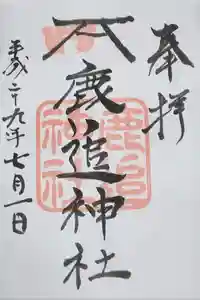 奉拝
鹿追神社
平成二十九年七月一日
鹿追
神社